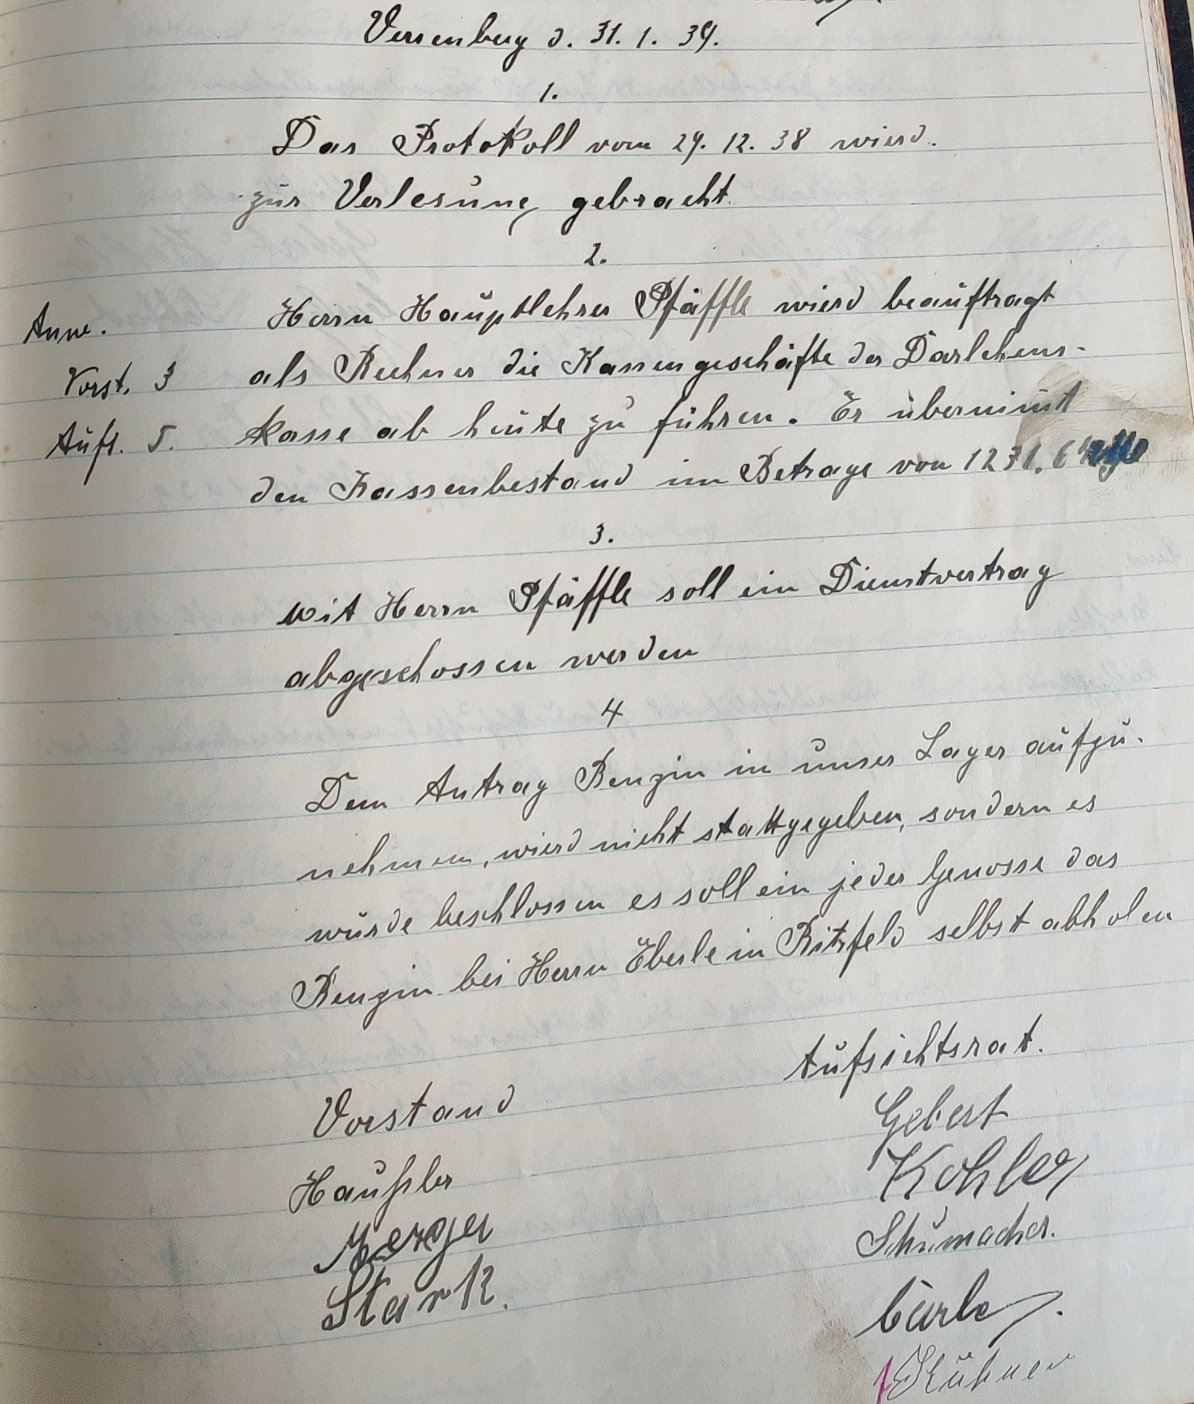 Verrenberg d. 31. 1. 39.
1.
Das Protokoll vom 29. 12. 38 wierd.
zur Verlesung gebracht.
2.
Anw.
Vorst. 3
Aufs. 5.
Herrn Hauptlehrer Pfäffle wierd beauftragt
als Rechner die Kassengeschäfte der Darlehens-
kasse ab heute zu führen. Er übernimt
den Kassenbestand im Betrage von 1231.6
3.
Mit Herrn Pfäffle soll ein Dienstvertrag
abgeschossen werden
4
Dem Antrag Benzin in unser Lager aufzu-
nehmen, wierd nicht stattgegeben, sondern es
wurde beschlossen es soll ein jeder Genosse das
Benzin bei Herrn Eberle in Bitzfeld selbst abholen
Vorstand
Haußler
Merger
Stark.
Aufsichtsrat.
Gebert
Kohler
Schumacher.
Kühner